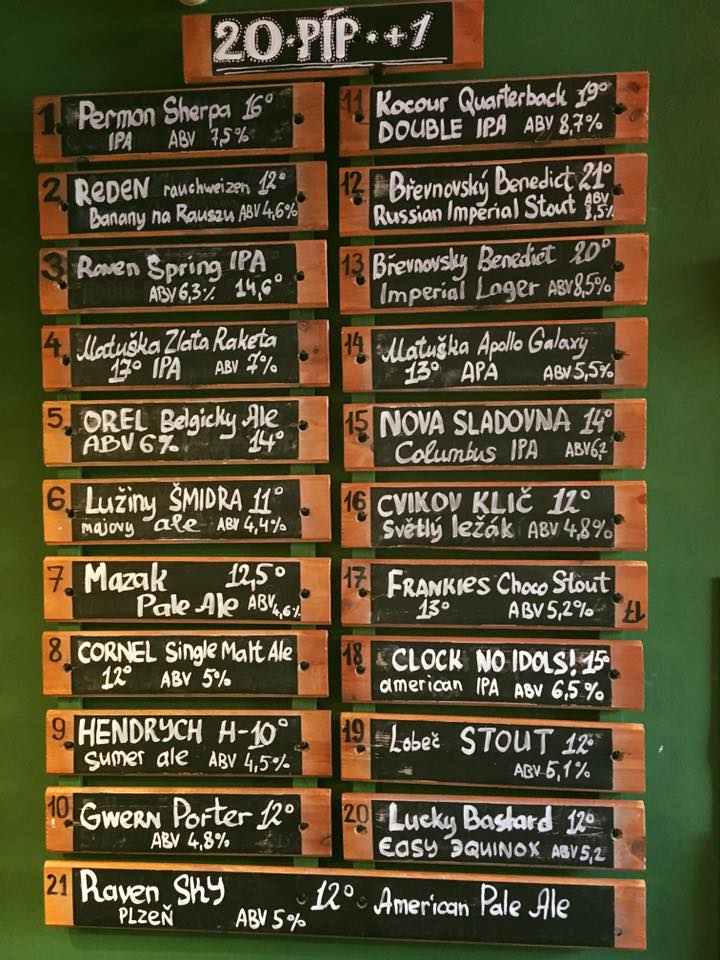 20·PÍP·+1
1. Permon Sherpa 16°
IPA ABV 7,5%
2. REDEN rauchweizen 12°
Banany na Rauszu ABV 4,6%
3. Raven Spring IPA
ABV 6,3% 14,6°
4. Matuška Zlata Raketa
17° IPA ABV 7%
5. OREL Belgicky Ale
ABV 6% 14°
6. Lužiny ŠMIDRA 11°
májový ale ABV 4,4%
7 Mazak 12,5°
Pale Ale ABV 4,6%
8 CORNEL Single Malt Ale
12° ABV 5%
9 HENDRYCH H-10°
Sumer ale ABV 4,5%
10 GWERN Porter 12°
ABV 4,8%
11 Kocour Quarterback 19°
DOUBLE IPA ABV 8,7%
12 Břevnovský Benedict 21°
Russian Imperial Stout ABV 8,5%
13 Břevnovsky Benedict 20°
Imperial Lager ABV 8,5%
14 Matuška Apollo Galaxy
13° APA ABV 5,5%
15 NOVA SLADOVNA 14°
Columbus IPA ABV 6%
16 CVIKOV KLIČ 12°
Světlý ležák ABV 4,8%
17 FRANKIES Choco Stout 17
13° ABV 5,2%
18 CLOCK NO IDOLS! 15°
american IPA ABV 6,5%
19 Lobeč STOUT 12°
ABV 5,1%
20 Lucky Bastard 12°
EASY EQUINOX ABV 5,2
21 Raven SKY 12° American Pale Ale
PLZEŇ ABV 5%